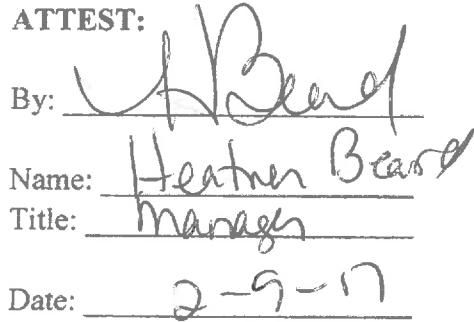 ATTEST:
By: H Beard
Name: Heather Beard
Title: Manager
Date: 2-9-17